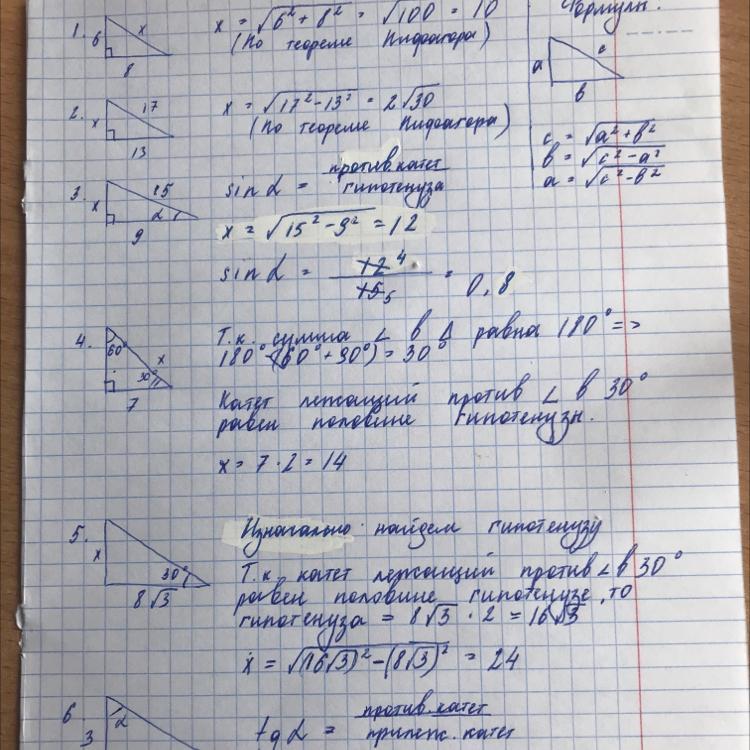 Формулы:
1. 6 x 8
x = √6² + 8² = √100 = 10
(По теореме Пифагора)
a c b
2. x 17 13
x = √17² - 13² = 2√30
(По теореме Пифагора)
c = √a² + b²
b = √c² - a²
a = √c² - b²
3. x 15 α 9
sin α = против. катет / гипотенуза
x = √15² - 9² = 12
sin α = 12 4 / 15 5 = 0,8
4. 60° x 30° 7
Т.к. сумма ∠ в Δ равна 180° =>
180° - (60° + 90°) = 30°
Катет лежащий против ∠ в 30°
равен половине гипотенузы.
x = 7 · 2 = 14
5. x 30° 8√3
Изначально найдем гипотенузу
Т.к. катет лежащий против ∠ в 30°
равен половине гипотенузе, то
гипотенуза = 8√3 · 2 = 16√3
x = √(16√3)² - (8√3)² = 24
6. α 3
tg α = против. катет / прилеж. катет